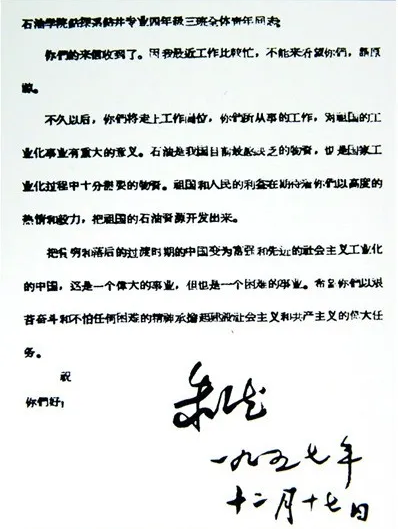 石油学院鉆探系鉆井专业四年级三班全体青年同志:
你們的来信收到了。因我最近工作比較忙,不能来看望你們,請原
諒。
不久以后,你們将走上工作崗位,你們所从事的工作,对祖国的工
业化事业有重大的意义。石油是我国目前最感缺乏的物資,也是国家工
业化过程中十分重要的物資。祖国和人民的利益在期待着你們以高度的
热情和毅力,把祖国的石油資源开发出来。
把貧穷和落后的过渡时期的中国变为富强和先进的社会主义工业化
的中国,这是一个偉大的事业,但也是一个困难的事业。希望你們以艰
苦奋斗和不怕任何困难的精神承擔起建設社会主义和共产主义的偉大任
务。
祝
你們好!
朱德
一九五七年
十二月十七日